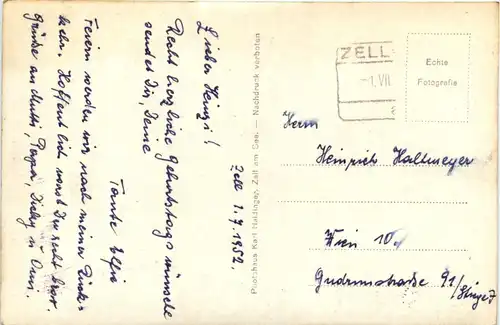 Zell 1.7.1952.
Lieber Heinzi!
Recht herzliche Geburtstagswünsche
sendet Dir, Deine
Tante
Feiern werden wir nach meiner Rück-
kehr. Hoffentlich wirst Du recht
Grüße an Mutti, Papa, u. Omi.
Photohaus Karl Haidinger, Zell am See. — Nachdruck verboten
ZELL
1.VII
Echte
Fotografie
Herrn
Heinrich Haltmeyer
Wien 10.
Gudrunstraße 91/